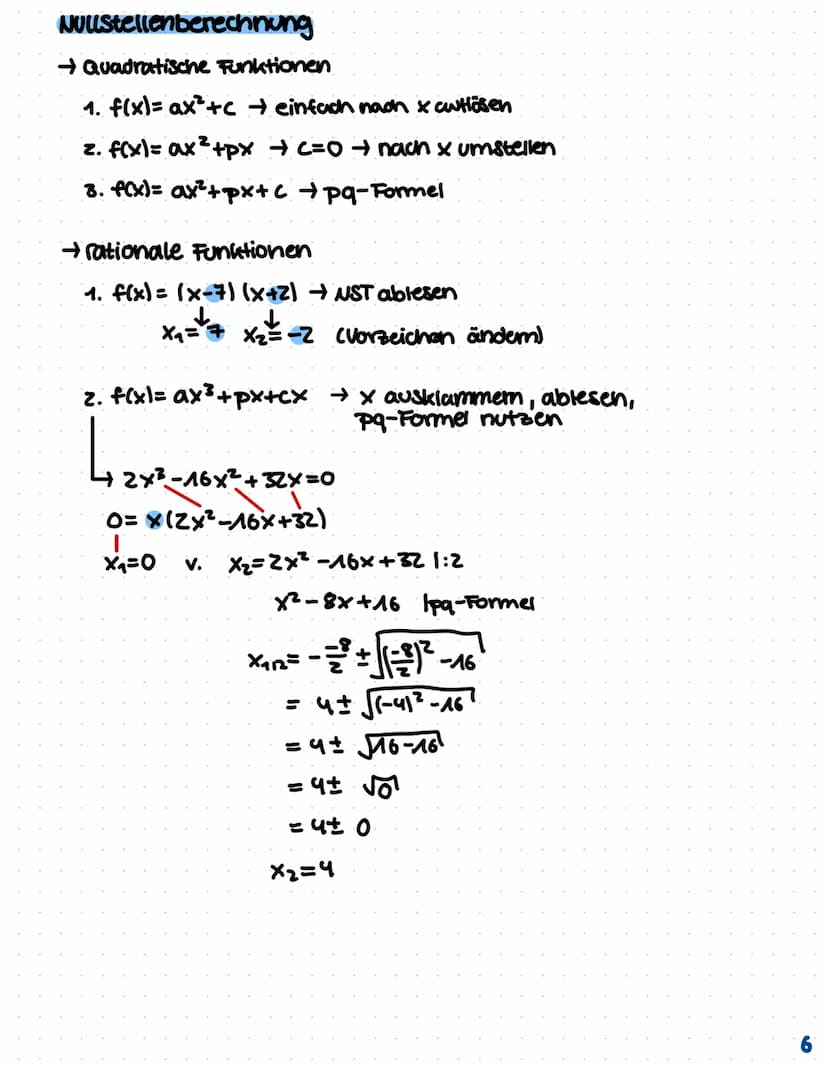 Nullstellenberechnung
→ Quadratische Funktionen
1. f(x)= ax²+c → einfach nach x auflösen
2. f(x)= ax²+px → c=0 → nach x umstellen
3. f(x)= ax²+px+c → pq-Formel
→ rationale Funktionen
1. f(x)= (x-7) (x+2) → NST ablesen
x₁= 7 x₂= -2 (Vorzeichen ändern)
2. f(x)= ax³+px+cx → x ausklammern, ablesen,
pq-Formel nutzen
↳ 2x³-16x²+32x=0
0= x(2x²-16x+32)
x₁=0 v. x₂=2x²-16x+32 |:2
x²-8x+16 |pq-Formel
x₁/₂= - -8/2 ± √((-8/2)²-16)
= 4± √((-4)²-16)
= 4± √(16-16)
= 4± √0
= 4± 0
x₂=4
6